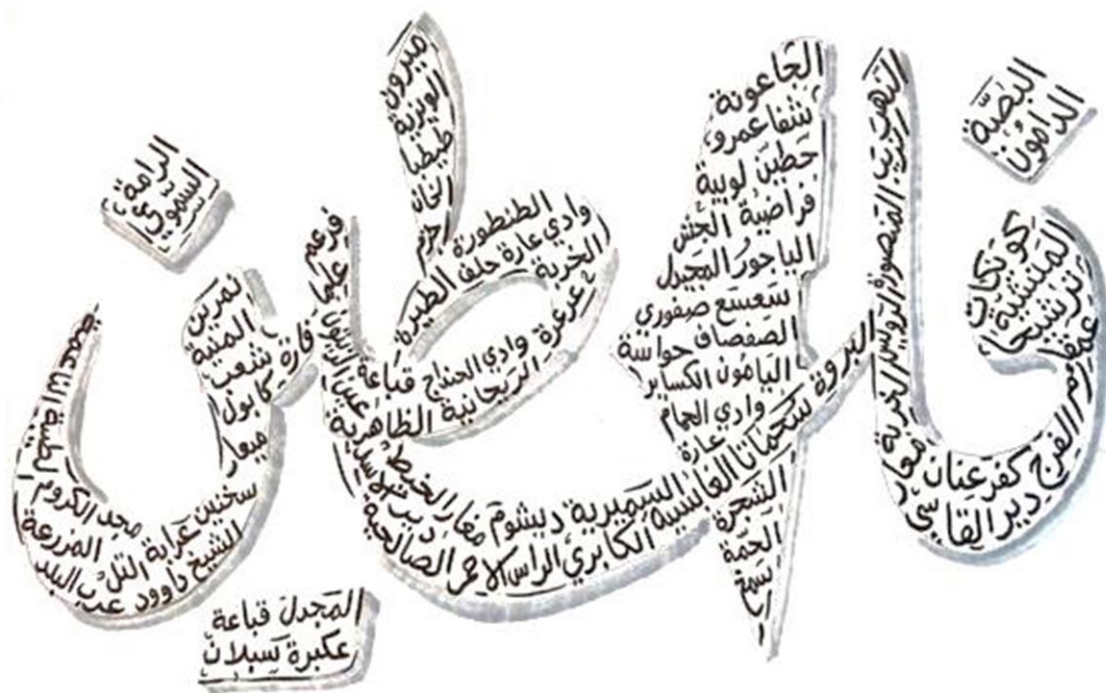 البصّة
الدامون
كويكات
المنشية
ترشيحا
عمقا
ام الفرج كفر عنان
دير القاسي
النهر
المنصورة
البروة سحماتا الغابسية الكابري الراس الاحمر الصالحية
الجاعونة
شفاعمرو
حطين لوبية
فراضية الجش
الياجور المجيدل
سعسع صفوري
الصفصاف حواسة
اليامون الكساير
وادي الحمام
عارة
الشجرة
الحمة
السميرية ديشوم مغار الخيط
ميرون
طيطبا
الطنطورة
وادي عارة
الطيرة
الخربة
عرعرة
وادي الحنداج قباعة
الريحانية الظاهرية
فرعم
علما
عين الزيتون
فارة
الرامة
السموي
نمرين
المنية
شعب
كابول
ميعار
سخنين عرابة مجد الكروم
الشيخ داوود
التل المزرعة
عرب
المجدل قباعة
عكبرة سبلان